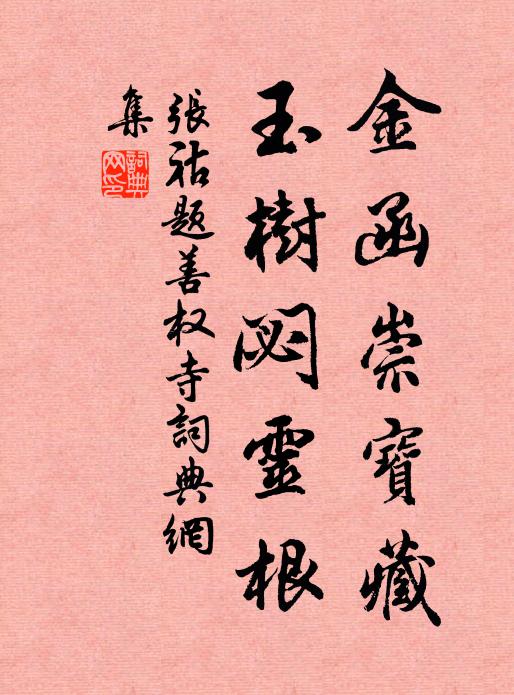 金函崇寶藏
玉樹閟靈根
張祜題善权寺詞典網
集
詞典网印